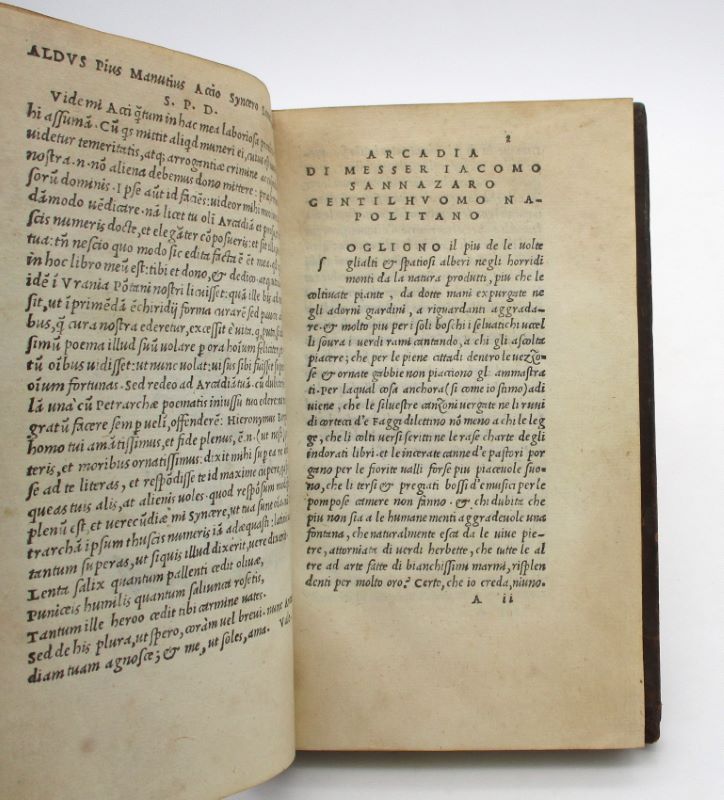 ALDVS Pius Manutius Actio Syncero
S. P. D.
Vide mi Acti q̃tum in hac mea laboriosa
hi assumã. Cũ q̃s mittit aliqd muneri ei,
uidetur temeritatis, atq; arrogantiæ crimine
nostra. n. nõ aliena debemus dono mittere:
sorũ dominis. Ipse aũt id faciẽs: uideor mihi
dãmodo uẽdicare. nã licet tu olĩ Arcadiã et
scis numeris docte, et elegãter cõposueris: et sic
tua: tñ nescio quo modo sic edita facta ẽ et mea.
in hoc libro meũ est: tibi et dono, et dedico. atq;
idẽ ĩ Vrania Põtani nostri licuisset: quã ille bis
sit, ut ĩ primẽdã ẽchiridij forma curarẽ sed
bus, q̃ cura nostra ederetur, excessit e uita. q̃ puto,
simũ poema illud suũ uolare per ora hoĩum felicit
tũ oĩbus uidisset: ut nunc uolat: uisus sibi fuisset
oĩum fortunas. Sed redeo ad Arcadiã tuã. cũ
lã unà cũ Petrarchæ poematis iniussu tuo ederẽ
gratũ facere sem p ueli, offenderẽ: Hieronymus
homo tui amãtissimus, et fide plenus, ẽ. n. (ut
teris, et moribus ornatissimus: dixit mihi
se ad te literas, et respõdisse te id maxime cupere,
queas tuis alis, at alienis uoles. quod respõsum
plenũ est, et uerecũdiæ mi Syncere, ut tua sunt
trarchã ipsum thuscis numeris iã adæquasti:
tantum superas, ut siquis illud dixerit, uere dixerit
Lenta salix quantum pallenti cedit oliuæ,
Puniceis humilis quantum saliunca rosetis,
Tantum ille heroo cedit tibi carmine uates.
Sed de his plura, ut spero, coràm uel breui. nunc
diam tuam agnosce; & me, ut soles, ama. Vale
2
ARCADIA
DI MESSER IACOMO
SANNAZARO
GENTILHVOMO NA-
POLITANO
ſ OGLIONO il piu de le uolte
glialti & spatiosi alberi negli horridi
monti da la natura produtti, piu che le
coltiuate piante, da dotte mani expurgate ne
gli adorni giardini, a riguardanti aggrada-
re. & molto piu per i soli boschi i seluatichi uccel
li soura i uerdi rami cantando, a chi gli ascolta
piacere; che per le piene cittadi dentro le uezzo-
se & ornate gabbie non piacciono gli ammastra
ti. Per laqual cosa anchora (si come io stimo) ad
uiene, che le siluestre canzoni uergate ne li ruuidi
di corteci d'e Faggi dilettino nõ meno a chi le leg
ge, che li colti uersi scritti ne le rase charte degli
indorati libri. et le incerate canne d'e pastori por
gano per le fiorite ualli forse piu piaceuole suo-
no, che li tersi & pregiati bossi d'e musici per le
pompose camere non fanno. & chi dubita che
piu non sia a le humane menti aggradeuole una
fontana, che naturalmente esca da le uiue pie-
tre, attorniata di uerdi herbette, che tutte le al
tre ad arte fatte di bianchissimi marmi, risplen
denti per molto oro? Certo, che io creda, niuno.
A ii